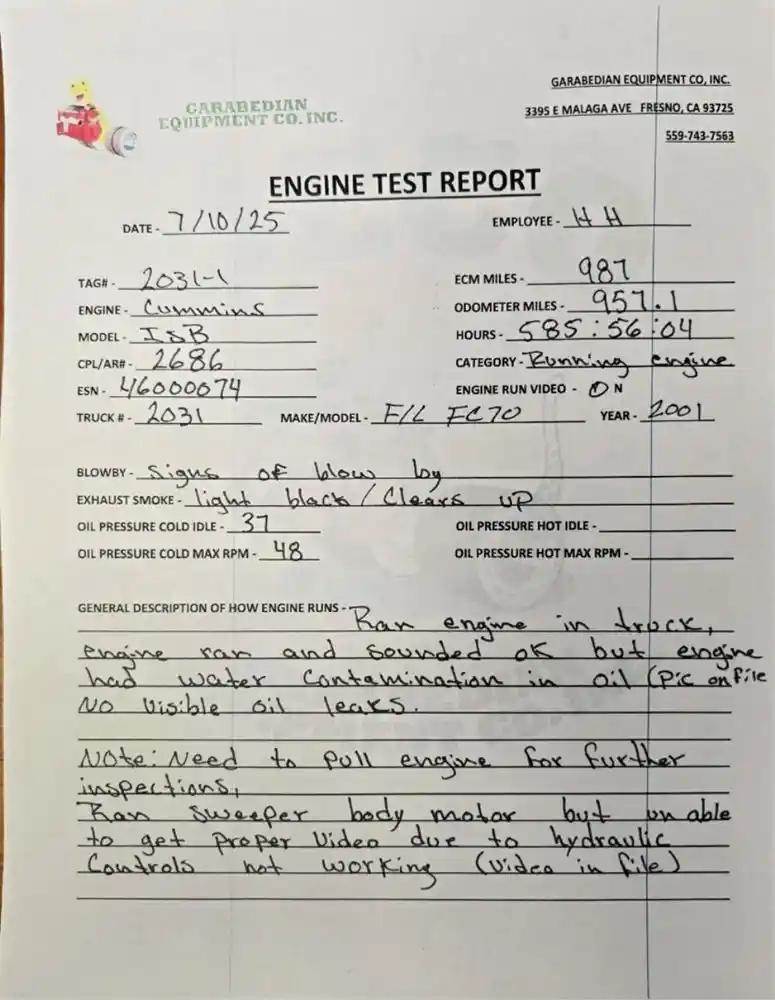 GARABEDIAN EQUIPMENT CO, INC.
GARABEDIAN
EQUIPMENT CO. INC.
3395 E MALAGA AVE FRESNO, CA 93725
559-743-7563
ENGINE TEST REPORT
DATE - 7/10/25 EMPLOYEE - H H
TAG# - 2031-1 ECM MILES - 987
ENGINE - Cummins ODOMETER MILES - 957.1
MODEL - ISB HOURS - 585:56:04
CPL/AR# - 2686 CATEGORY - Running engine
ESN - 46000074 ENGINE RUN VIDEO - N
TRUCK # - 2031 MAKE/MODEL - F/L FC70 YEAR - 2001
BLOWBY - Signs of blow by
EXHAUST SMOKE - light black / Clears up
OIL PRESSURE COLD IDLE - 37 OIL PRESSURE HOT IDLE -
OIL PRESSURE COLD MAX RPM - 48 OIL PRESSURE HOT MAX RPM -
GENERAL DESCRIPTION OF HOW ENGINE RUNS - Ran engine in truck,
engine ran and sounded ok but engine
had water contamination in oil (Pic on file
No visible oil leaks.
Note: Need to pull engine for further
inspections,
Ran sweeper body motor but un able
to get proper video due to hydraulic
Controls not working (video in file)